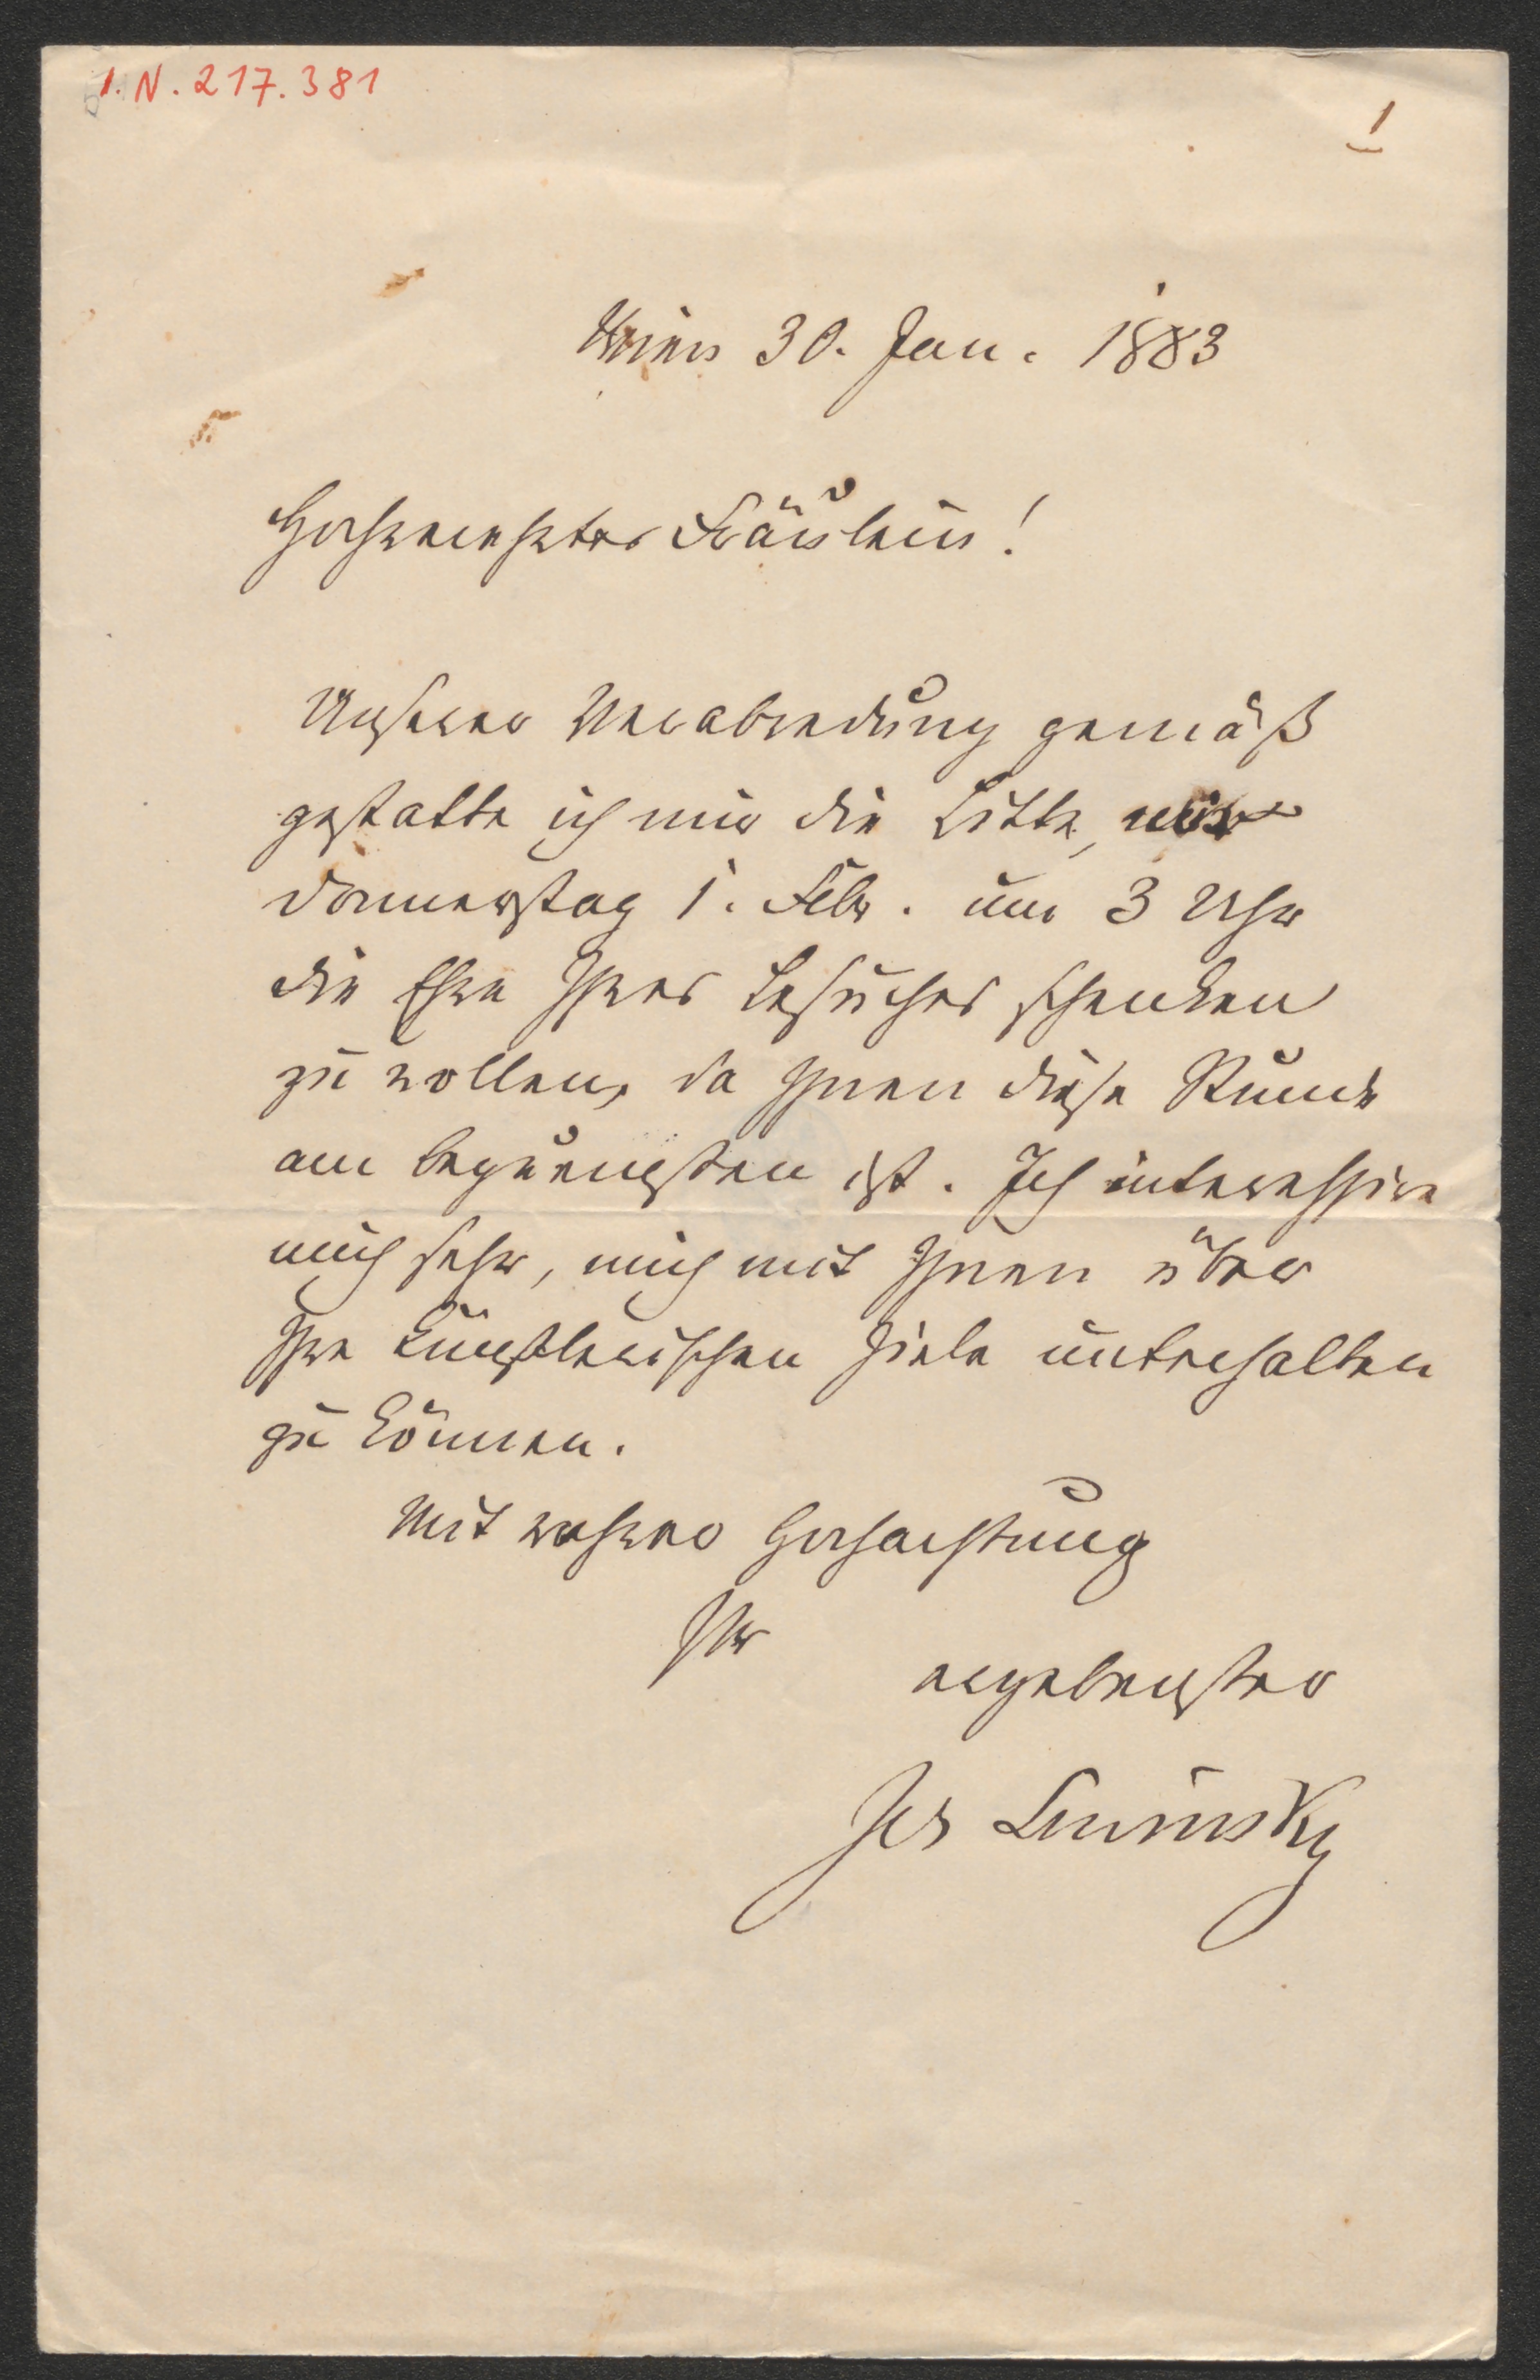 I. N. 217.381
1
Wien 30. Jan. 1883
Hochverehrtes Fräulein!
Unserer Verabredung gemäß
gestatte ich mir die Bitte, mir
Donnerstag 1. Febr. um 3 Uhr
die Ehre Ihres Besuches schenken
zu wollen, da Ihnen diese Stunde
am bequemsten ist. Ich interessire
mich sehr, mich mit Ihnen über
Ihre künstlerischen Ziele unterhalten
zu können.
Mit wahrer Hochachtung
Ihr
ergebenster
Jos Lewinsky